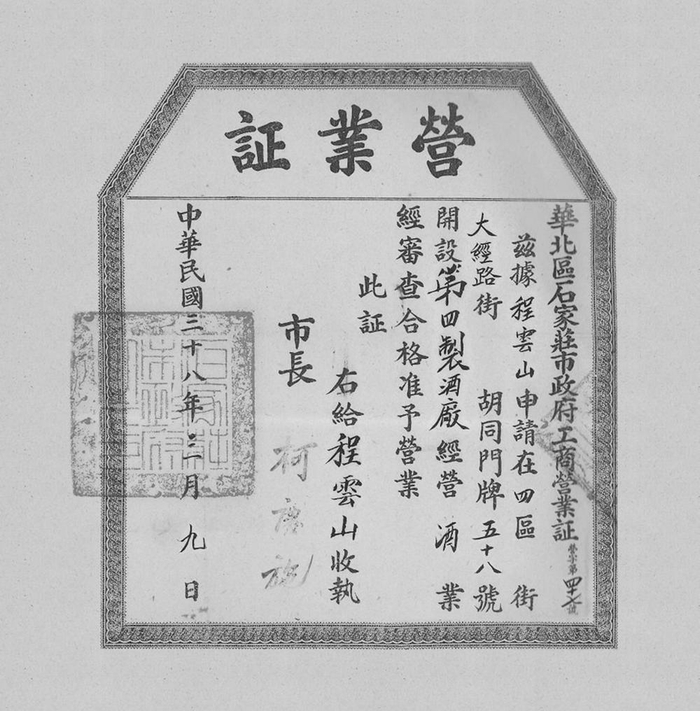 營業証
華北區石家莊市政府工商營業証 營字第四十七號
茲據程雲山申請在四區 街
大經路街 胡同門牌五十八號
開設第四製酒廠經營 酒業
經審查合格准予營業
此証
右給程雲山收執
市長 柯
中華民國三十八年二月九日